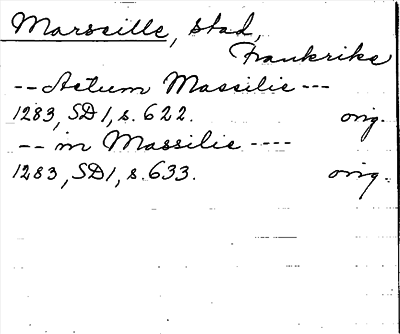 Marseille, stad,
Frankrike
--Actum Massilie---
1283, SD1, s. 622. orig.
-- in Massilie ----
1283, SD1, s. 633. orig.